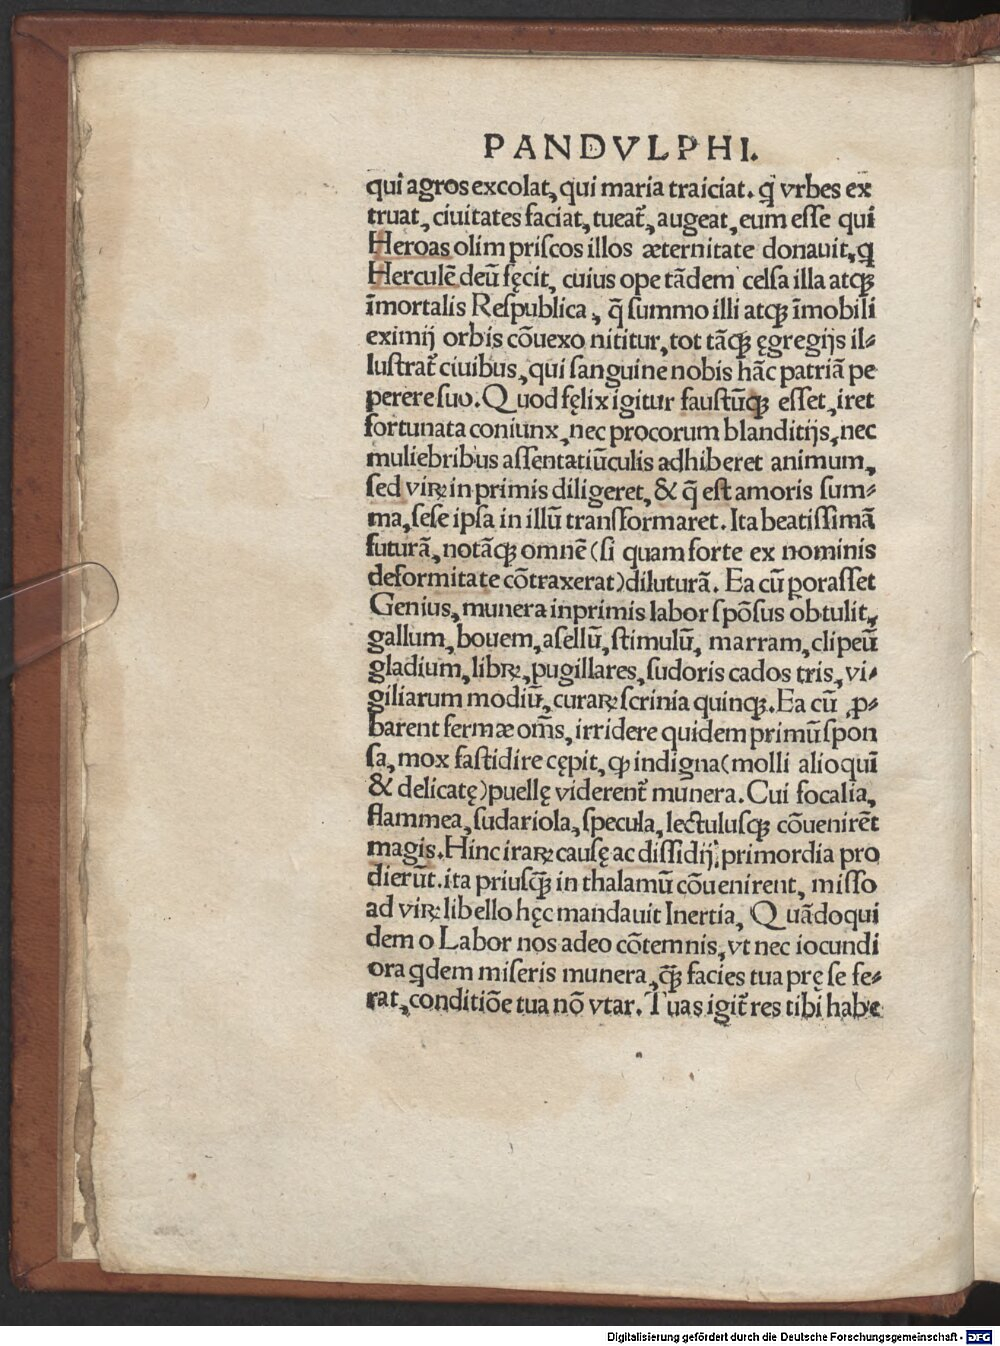 PANDVLPHI.
qui agros excolat, qui maria traiciat. q̃ vrbes ex
truat, ciuitates faciat, tueat᷑, augeat, eum eſſe qui
Heroas olim priſcos illos æternitate donauit, q
Herculē deū fęcit, cuius ope tādem celſa illa atqꝫ
īmortalis Reſpublica, q̄ ſummo illi atqꝫ īmobili
eximij orbis cōuexo nititur, tot tāqꝫ ęgregijs il⸗
luſtrat᷑ ciuibus, qui ſanguine nobis hāc patriā pe
perere ſuo. Quod fęlix igitur fauſtūqꝫ eſſet, iret
fortunata coniunx, nec procorum blanditijs, nec
muliebribus aſſentatiūculis adhiberet animum,
ſed viꝝ inprimis diligeret, & q̄ eſt amoris ſum⸗
ma, ſeſe ipſa in illū tranſformaret. Ita beatiſſimā
futurā, notāqꝫ omnē (ſi quam forte ex nominis
deformitate cōtraxerat) diluturā. Ea cū poraſſet
Genius, munera inprimis labor ſpōſus obtulit,
gallum, bouem, aſellū, ſtimulū, marram, clipeū
gladium, libꝝ, pugillares, ſudoris cados tris, vi⸗
giliarum modiū, curaꝝ ſcrinia quinqꝫ. Ea cū ꝓ⸗
barent fermæ om̄s, irridere quidem primū ſpon
ſa, mox faſtidire cępit, ꝙ indigna (molli alioqui
& delicatę) puellę viderent᷑ munera. Cui focalia,
flammea, ſudariola, ſpecula, lectuluſqꝫ cōuenirēt
magis. Hinc iraꝝ cauſę ac diſſidij primordia pro
dierūt. ita priuſqꝫ̄ in thalamū cōuenirent, miſſo
ad viꝝ libello hęc mandauit Inertia, Quādoqui
dem o Labor nos adeo cōtemnis, vt nec iocundi
ora qdem miſeris munera, qꝫ̄ facies tua prę ſe fe⸗
rat, conditiōe tua nō vtar. Tuas igit᷑ res tibi habe
Digitalisierung gefördert durch die Deutsche Forschungsgemeinschaft - DFG